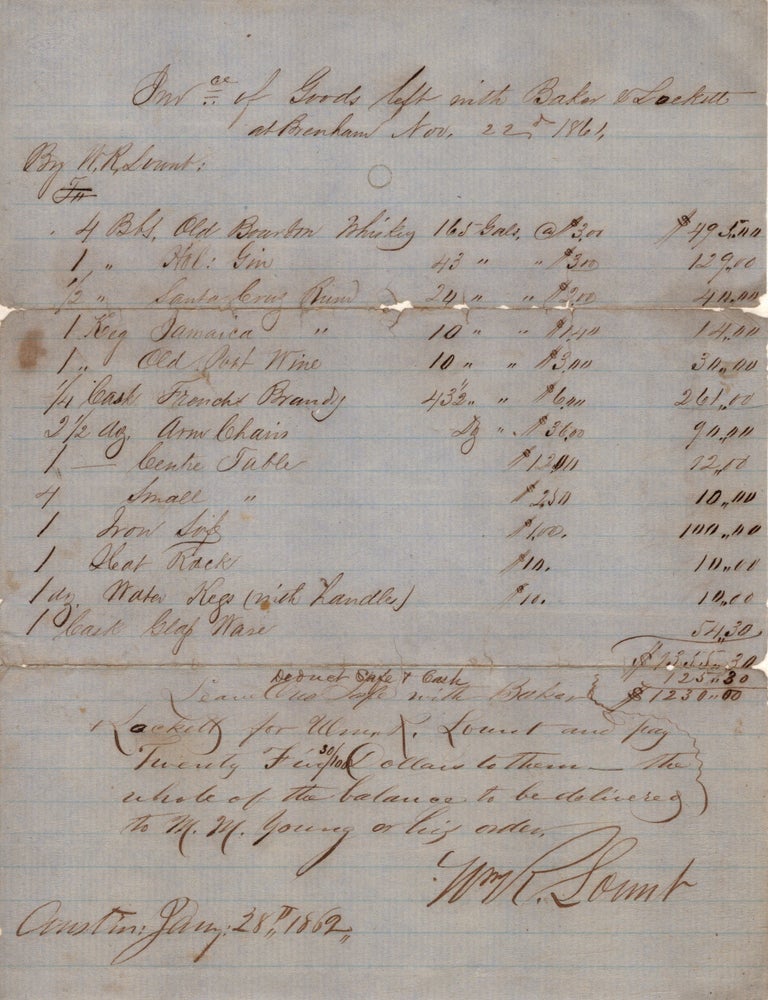 Invce of Goods left with Baker & Lockett
at Brenham Nov. 22d 1861,
By W. R. Lount:
To
4 Bbs. Old Bourbon Whiskey 165 Gals. @ $3.00 $495.00
1 " Hol: Gin 43 " " $3.00 129.00
1/2 " Santa Cruz Rum 20 " " $2.00 40.00
1 Keg Jamaica " 10 " " $1.40 14.00
1 " Old Port Wine 10 " " $3.00 30.00
1/4 Cask French Brandy 43 1/2 " " $6.00 261.00
2 1/2 dz. Arm Chairs Dz " $36.00 90.00
1 — Centre Table $12.00 12.00
4 Small " $2.50 10.00
1 Iron Safe $100. 100.00
1 Hat Rack $10. 10.00
1 dz. Water Kegs (with handles) $10. 10.00
1 Cask Glass Ware 54.30
$1355.30
Deduct Safe & Cash 125.30
Leave Safe with Baker $1230.00
& Lockett for Wm. R. Lount and pay
Twenty Five 30/100 Dollars to them — the
whole of the balance to be delivered
to M. M. Young or his order.
Wm R. Lount
Austin: Jany: 28th 1862